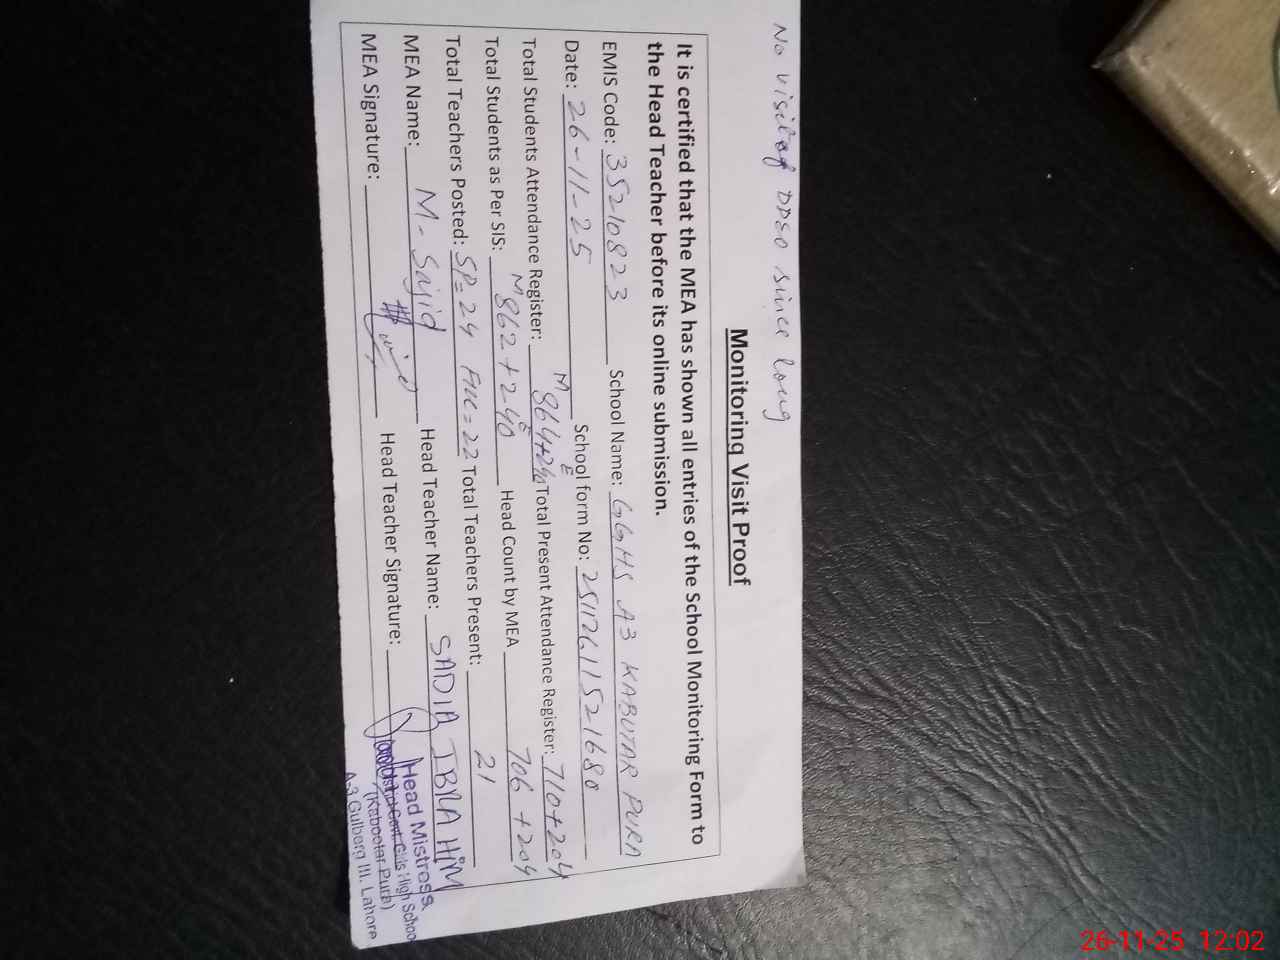 No visit of DDEO since long
Monitoring Visit Proof
It is certified that the MEA has shown all entries of the School Monitoring Form to
the Head Teacher before its online submission.
EMIS Code: 35210823 School Name: GGHS A3 KABUTAR PURA
Date: 26-11-25 School form No: 251126115216 80
Total Students Attendance Register: M 864+240 E Total Present Attendance Register: 710+204
Total Students as Per SIS: M 862+240 E Head Count by MEA 706+204
Total Teachers Posted: SP=24 Fill=22 Total Teachers Present: 21
MEA Name: M-Sajid Head Teacher Name: SADIA IBRAHIM
MEA Signature: Head Teacher Signature:
Head Mistress
Govt. Girls High School
(Kabootar Pura)
A-3 Gulberg III. Lahore
26-11-25 12:02